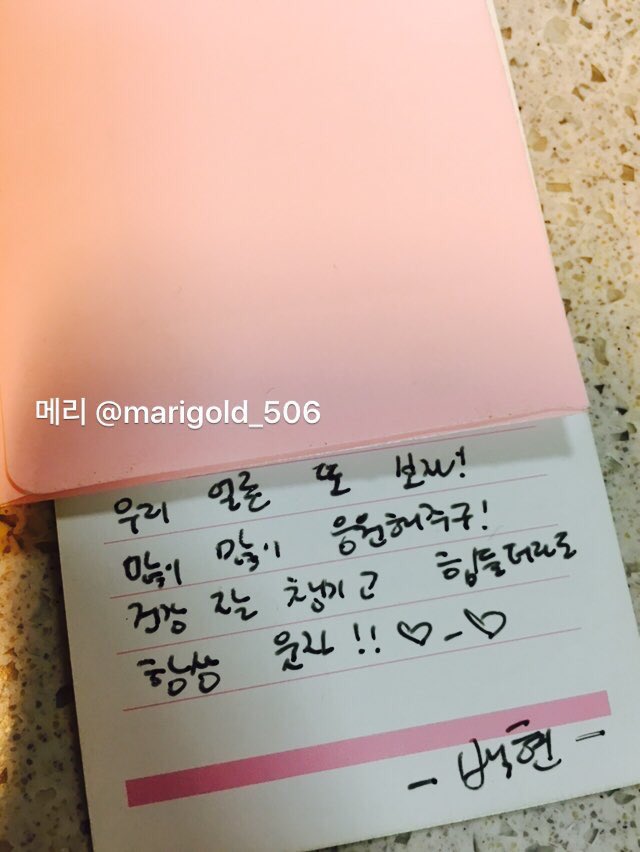 메리 @marigold_506
우리 얼른 또 보자!
많이 많이 응원해주구!
건강 잘 챙기고 힘들더라도
항상 웃자!! ♡-♡
- 백현 -